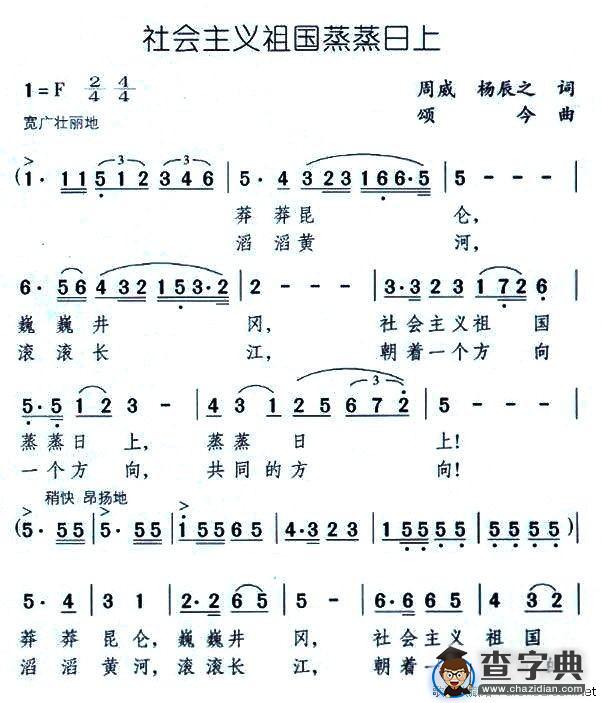 社会主义祖国蒸蒸日上
1=F 2/4 4/4
周威 杨辰之 词
宽广壮丽地
颂 今 曲
(1· 11 512 346 | 5· 4 323 166·5 | 5 - - - |
莽莽昆 仑,
滔滔黄 河,
6· 56 432 153·2 | 2 - - - | 3·323 172 6 |
巍巍井 冈, 社会主义祖 国
滚滚长 江, 朝着一个方 向
5·5 12 3 - | 43 1 25 672 | 5 - - - |
蒸蒸日 上, 蒸蒸 日 上!
一个方 向, 共同的方 向!
稍快 昂扬地
(5· 55 5· 55 | 1155 65 | 4·323 | 1555 5555 |)
5· 4 | 3 1 | 2·2 65 | 5 - | 6·6 65 | 4 32 |
莽 莽 昆 仑, 巍巍井 冈, 社会主义 祖 国
滔 滔 黄 河, 滚滚长 江, 朝着一
查字典
www.chazidian.com